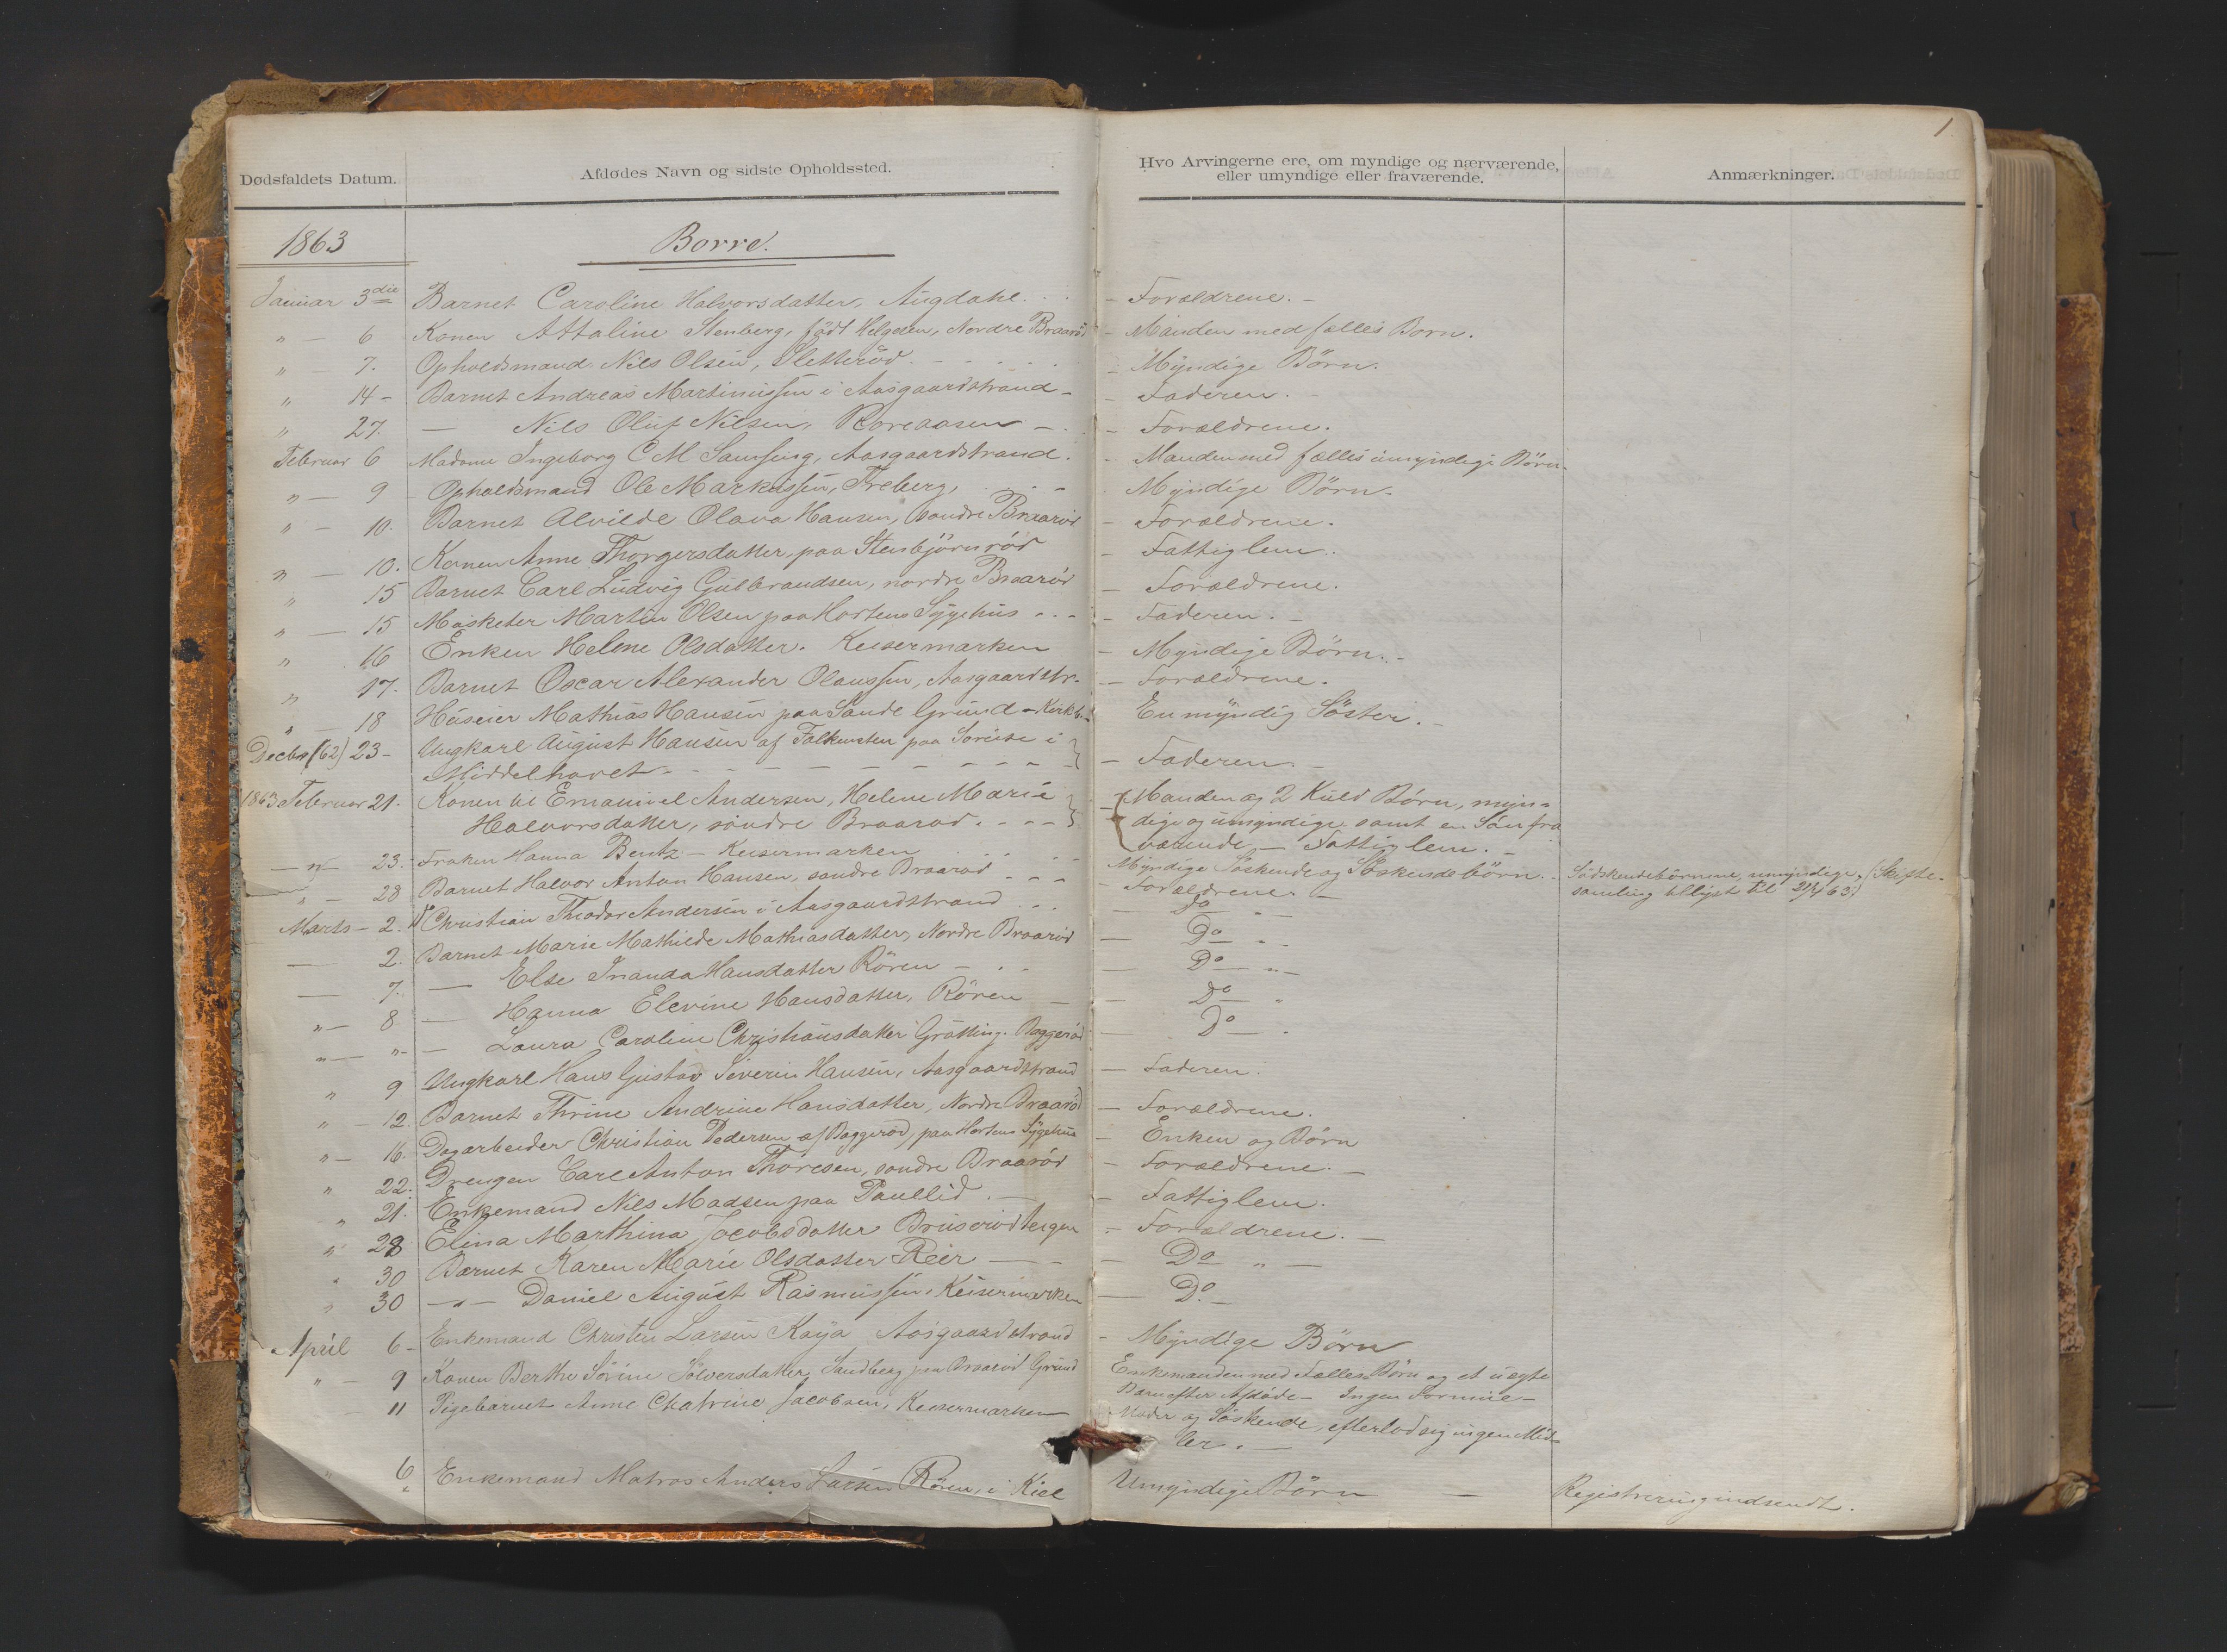 1
Dødsfaldets Datum.
Afdødes Navn og sidste Opholdssted.
Hvo Arvingerne ere, om myndige og nærværende,
eller umyndige eller fraværende.
Anmærkninger.
1863 Borre.
Januar 3die Barnet Caroline Halvorsdatter, Augdahl. - Forældrene. -
" - 6 Konen Attaline Stenberg, født Helgesen, Nordre Braarød - Manden med fælles Børn.
" - 7. Opholdsmand Nils Olsen, Sletterød - Myndige Børn.
" 14 - Barnet Andreas Martinussen i Aasgaardstrand - Faderen.
" 27. — Nils Oluf Nilsen, Roreaasen - Forældrene.
Februar 6 Madame Ingeborg C M Samsing, Aasgaardstrand. - Manden med fælles umyndige Børn.
" - 9 Opholdsmand Ole Markussen, Freberg, Myndige Børn.
" - 10. Barnet Alvilde Olava Hansen, søndre Braarød - Forældrene.
" - 10. Konen Anne Thorgersdatter, paa Stenbjørnrød - Fattiglem.
" 15 Barnet Carl Ludvig Gulbrandsen, nordre Braarød - Forældrene.
" - 15 Musketer Martin Olsen paa Hortens Sygehus - Faderen. -
" 16 Enken Helene Olsdatter. Keisermarken - Myndige Børn. -
" 17. Barnet Oscar Alexander Olaussen, Aasgaardstr. - Forældrene.
" - 18 Huseier Mathias Hansen paa Sande Grund - Kirkb. En myndig Søster. -
Decbr (62) 23 - Ungkarl August Hansen af Falkensten paa Soreise i
Middelhavet - Faderen. -
1863 Februar 21. Konen til Emanuel Andersen, Helene Marie
Halvorsdatter, søndre Braarød. { Manden og 2 Kuld Børn, myn-
dige og umyndige samt en Søn fra
værende, - Fattiglem. -
— " — 23. Frøken Hanna Bentz - Keisermarken Myndige Søskende og Søskendebørn. Södskendebörnene, umyndige, (Skifte-
samling tillyst til 21/4 63)
" - 28 Barnet Halvor Anton Hansen, søndre Braarød - Forældrene. -
Marts - 2. " Christian Theodor Andersen i Aasgaardstrand Do
— 2. Barnet Marie Mathilde Mathiasdatter, Nordre Braarød — Do " -
— 7. — Else Inanda Hansdatter Røren — Do " -
" - 8 — Hanna Elevine Hansdatter, Røren — Do "
" - " - — Laura Caroline Christiansdatter Grötting. Baggerød — Do .
" 9 Ungkarl Hans Gustav Severin Hansen, Aasgaardstrand - Faderen.
" - 12. Barnet Thrine Andrine Hansdatter, Nordre Braarød - Forældrene.
" - 16. Dagarbeider Christian Pedersen af Baggerød, paa Hortens Sygehus - Enken og Børn
" 22. Drengen Carl Anton Thoresen, søndre Braarød - Forældrene. -
" 21. Enkemand Nils Madsen paa Paullid. - Fattiglem.
" 28 Elina Marthina Jacobsdatter Bruserødteigen - Forældrene. -
" 30 Barnet Karen Marie Olsdatter Reir — Do " -
" 30 — " — Daniel August Rasmussen, Keisermerken — Do. -
April 6 - Enkemand Christen Larsen Kaya Aasgaardstrand - Myndige Børn
" - 9 Konen Berthe Sørine Sølversdatter, Sandberg paa Braarød Grund Enkemanden med Fælles Børn og et uægte
Barn efter Afdøde - Ingen Formue -
11 Pigebarnet Anne Chatrine Jacobsen, Keisermarken Moder og Søskende, efterlod sig ingen Mid-
ler. -
" 6 Enkemand Matros Anders Larsen Røren, i Kiel Umyndige Børn — Registrering indsendt.